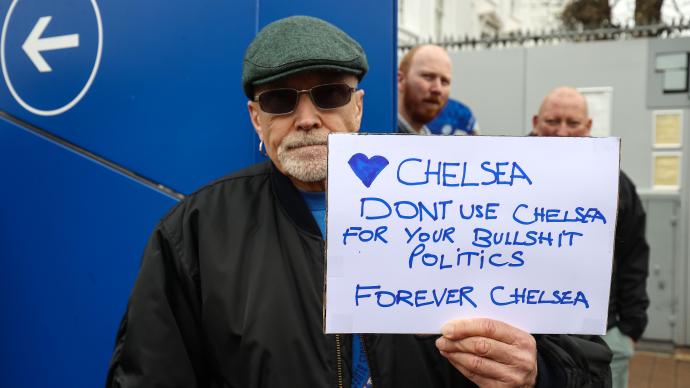 CHELSEA
DONT USE CHELSEA
FOR YOUR BULLSHIT
POLITICS
FOREVER CHELSEA